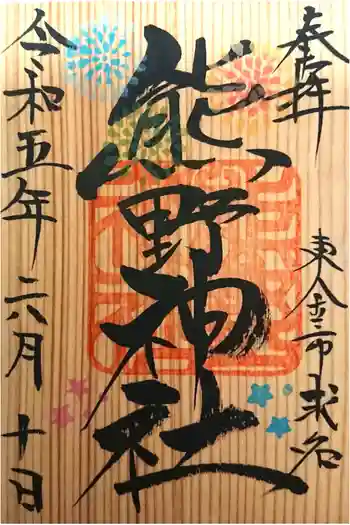 奉拝
東金市求名
熊野神社
令和五年 六月 十日